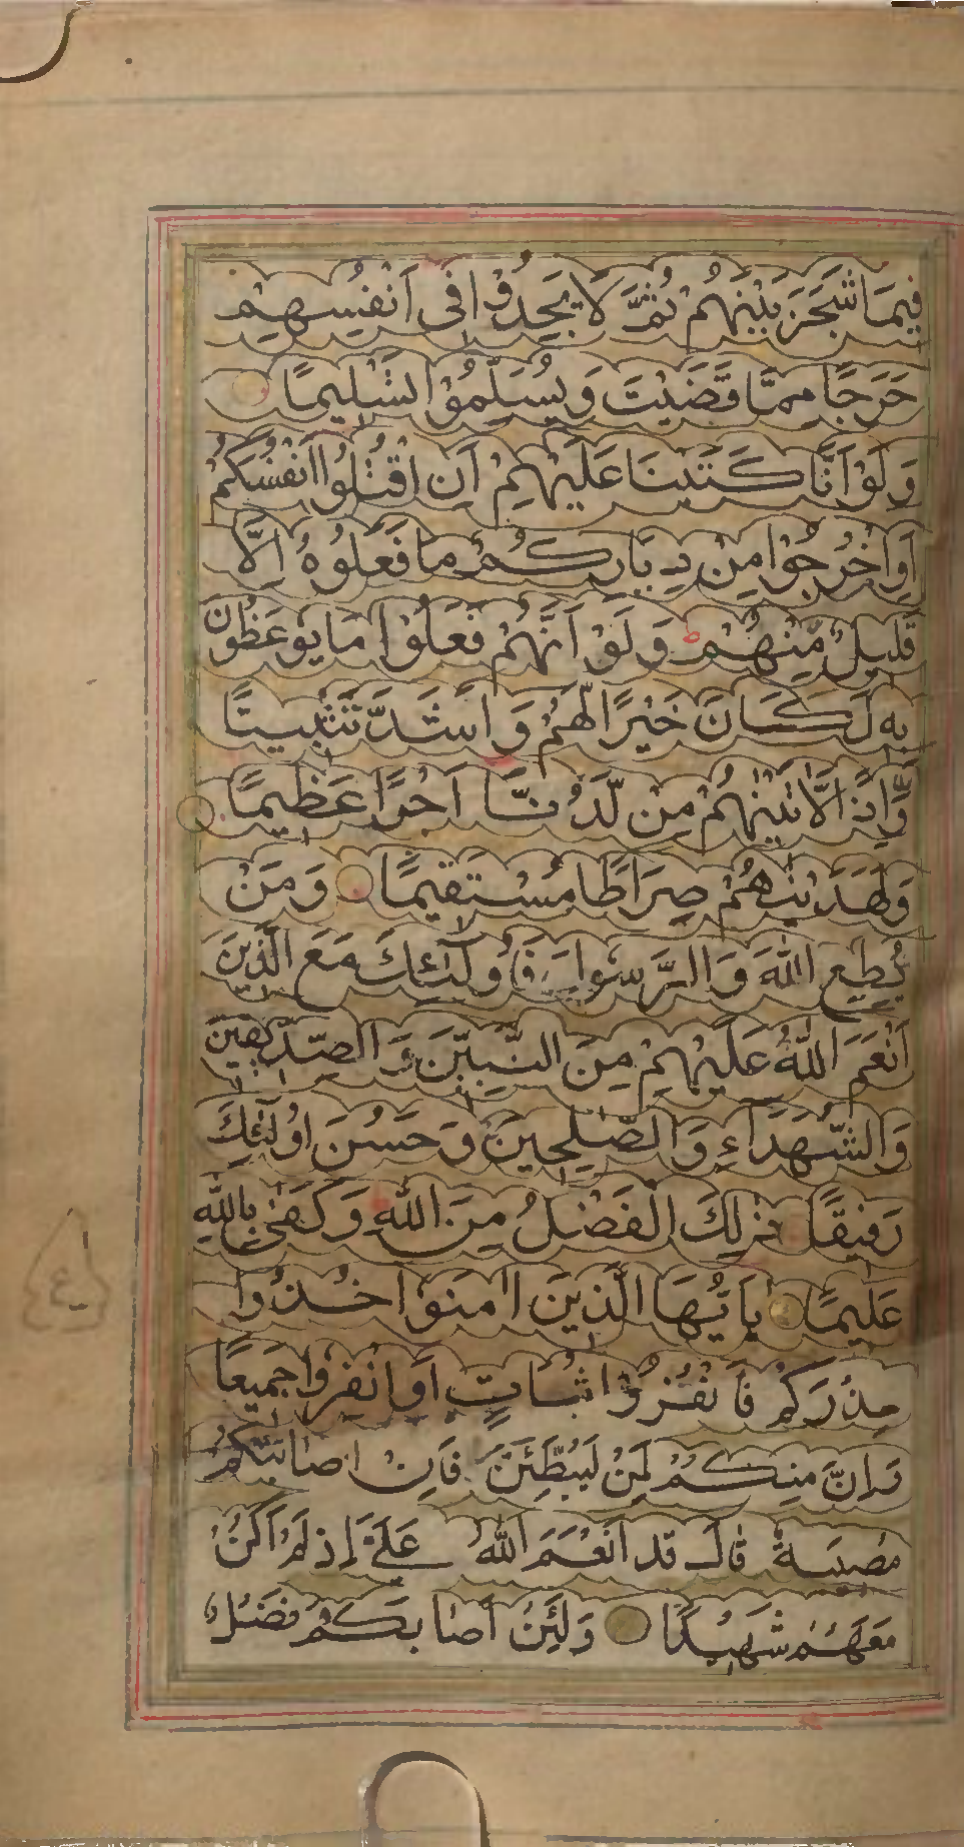 فِيمَا شَجَرَ بَيْنَهُمْ ثُمَّ لَا يَجِدُوْا فِى اَنْفُسِهِمْ
حَرَجًا مِمَّا قَضَيْتَ وَيُسَلِّمُوْا تَسْلِيمًا
وَلَوْ اَنَّا كَتَبْنَا عَلَيْهِمْ اَنِ اقْتُلُوْا اَنْفُسَكُمْ
اَوِ اخْرُجُوْا مِنْ دِيَارِكُمْ مَا فَعَلُوْهُ اِلَّا
قَلِيلٌ مِّنْهُمْ ط وَلَوْ اَنَّهُمْ فَعَلُوْا مَا يُوعَظُوْنَ
بِهِ لَكَانَ خَيْرًا لَّهُمْ وَاَشَدَّ تَثْبِيتًا
وَّاِذًا لَّاٰتَيْنٰهُمْ مِنْ لَّدُنَّا اَجْرًا عَظِيمًا
وَلَهَدَيْنٰهُمْ صِرَاطًا مُسْتَقِيمًا وَمَنْ
يُطِعِ اللّٰهَ وَالرَّسُولَ فَاُولٰٓئِكَ مَعَ الَّذِينَ
اَنْعَمَ اللّٰهُ عَلَيْهِمْ مِنَ النَّبِيّٖنَ وَالصِّدِّيقِينَ
وَالشُّهَدَآءِ وَالصّٰلِحِينَ وَحَسُنَ اُولٰٓئِكَ
رَفِيقًا ذٰلِكَ الْفَضْلُ مِنَ اللّٰهِ وَكَفٰى بِاللّٰهِ
عَلِيمًا يٰاَيُّهَا الَّذِينَ اٰمَنُوْا خُذُوْا
حِذْرَكُمْ فَانْفِرُوْا ثُبَاتٍ اَوِ انْفِرُوْا جَمِيعًا
وَاِنَّ مِنْكُمْ لَمَنْ لَيُبَطِّئَنَّ فَاِنْ اَصَابَتْكُمْ
مُصِيبَةٌ قَالَ قَدْ اَنْعَمَ اللّٰهُ عَلَىَّ اِذْ لَمْ اَكُنْ
مَعَهُمْ شَهِيْدًا وَلَئِنْ اَصَابَكُمْ فَضْلٌ
ع